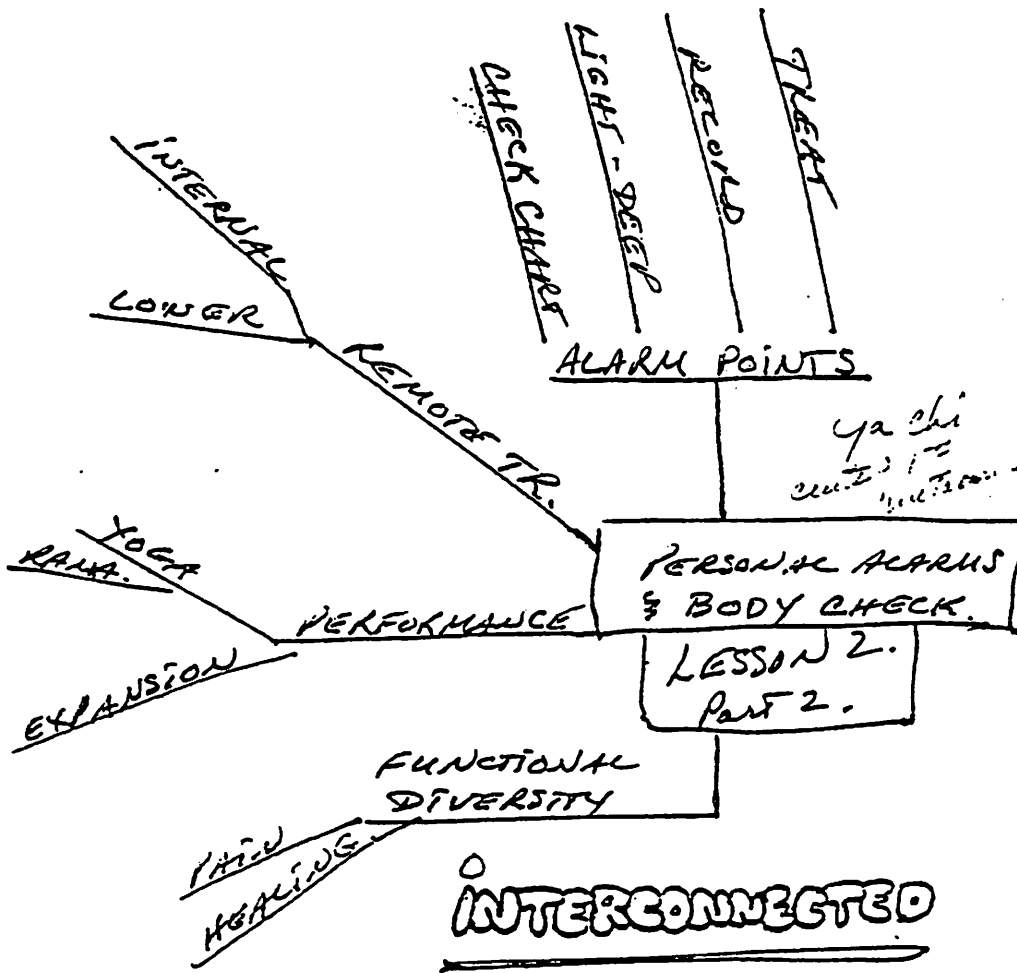 CHECK CHART
LIGHT - DEEP
RECORD
TREAT
ALARM POINTS
INTERNAL
LOWER
REMOTE TR.
ya chi
PERSONAL ALARMS
& BODY CHECK.
LESSON 2.
Part 2.
YOGA
RAMA.
PERFORMANCE
EXPANSION
FUNCTIONAL
DIVERSITY
PAIN
HEALING.
INTERCONNECTED